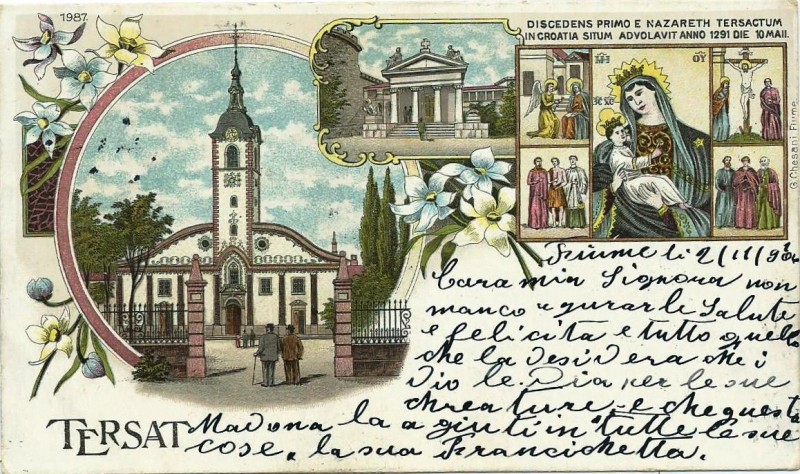 1987.
DISCEDENS PRIMO E NAZARETH TERSACTUM
IN CROATIA SITUM ADVOLAVIT ANNO 1291 DIE 10 MAII.
G. Chesani Fiume.
Fiume li 2/11/9
Cara mia Signora non
manco agurarle Salute
e felicita e tutto quello
che la desidera che i
Dio le Dia per le sue
chreature e che questa
TERSAT
Madona la agiuti in tutte le sue
cose, la sua Francichetta.